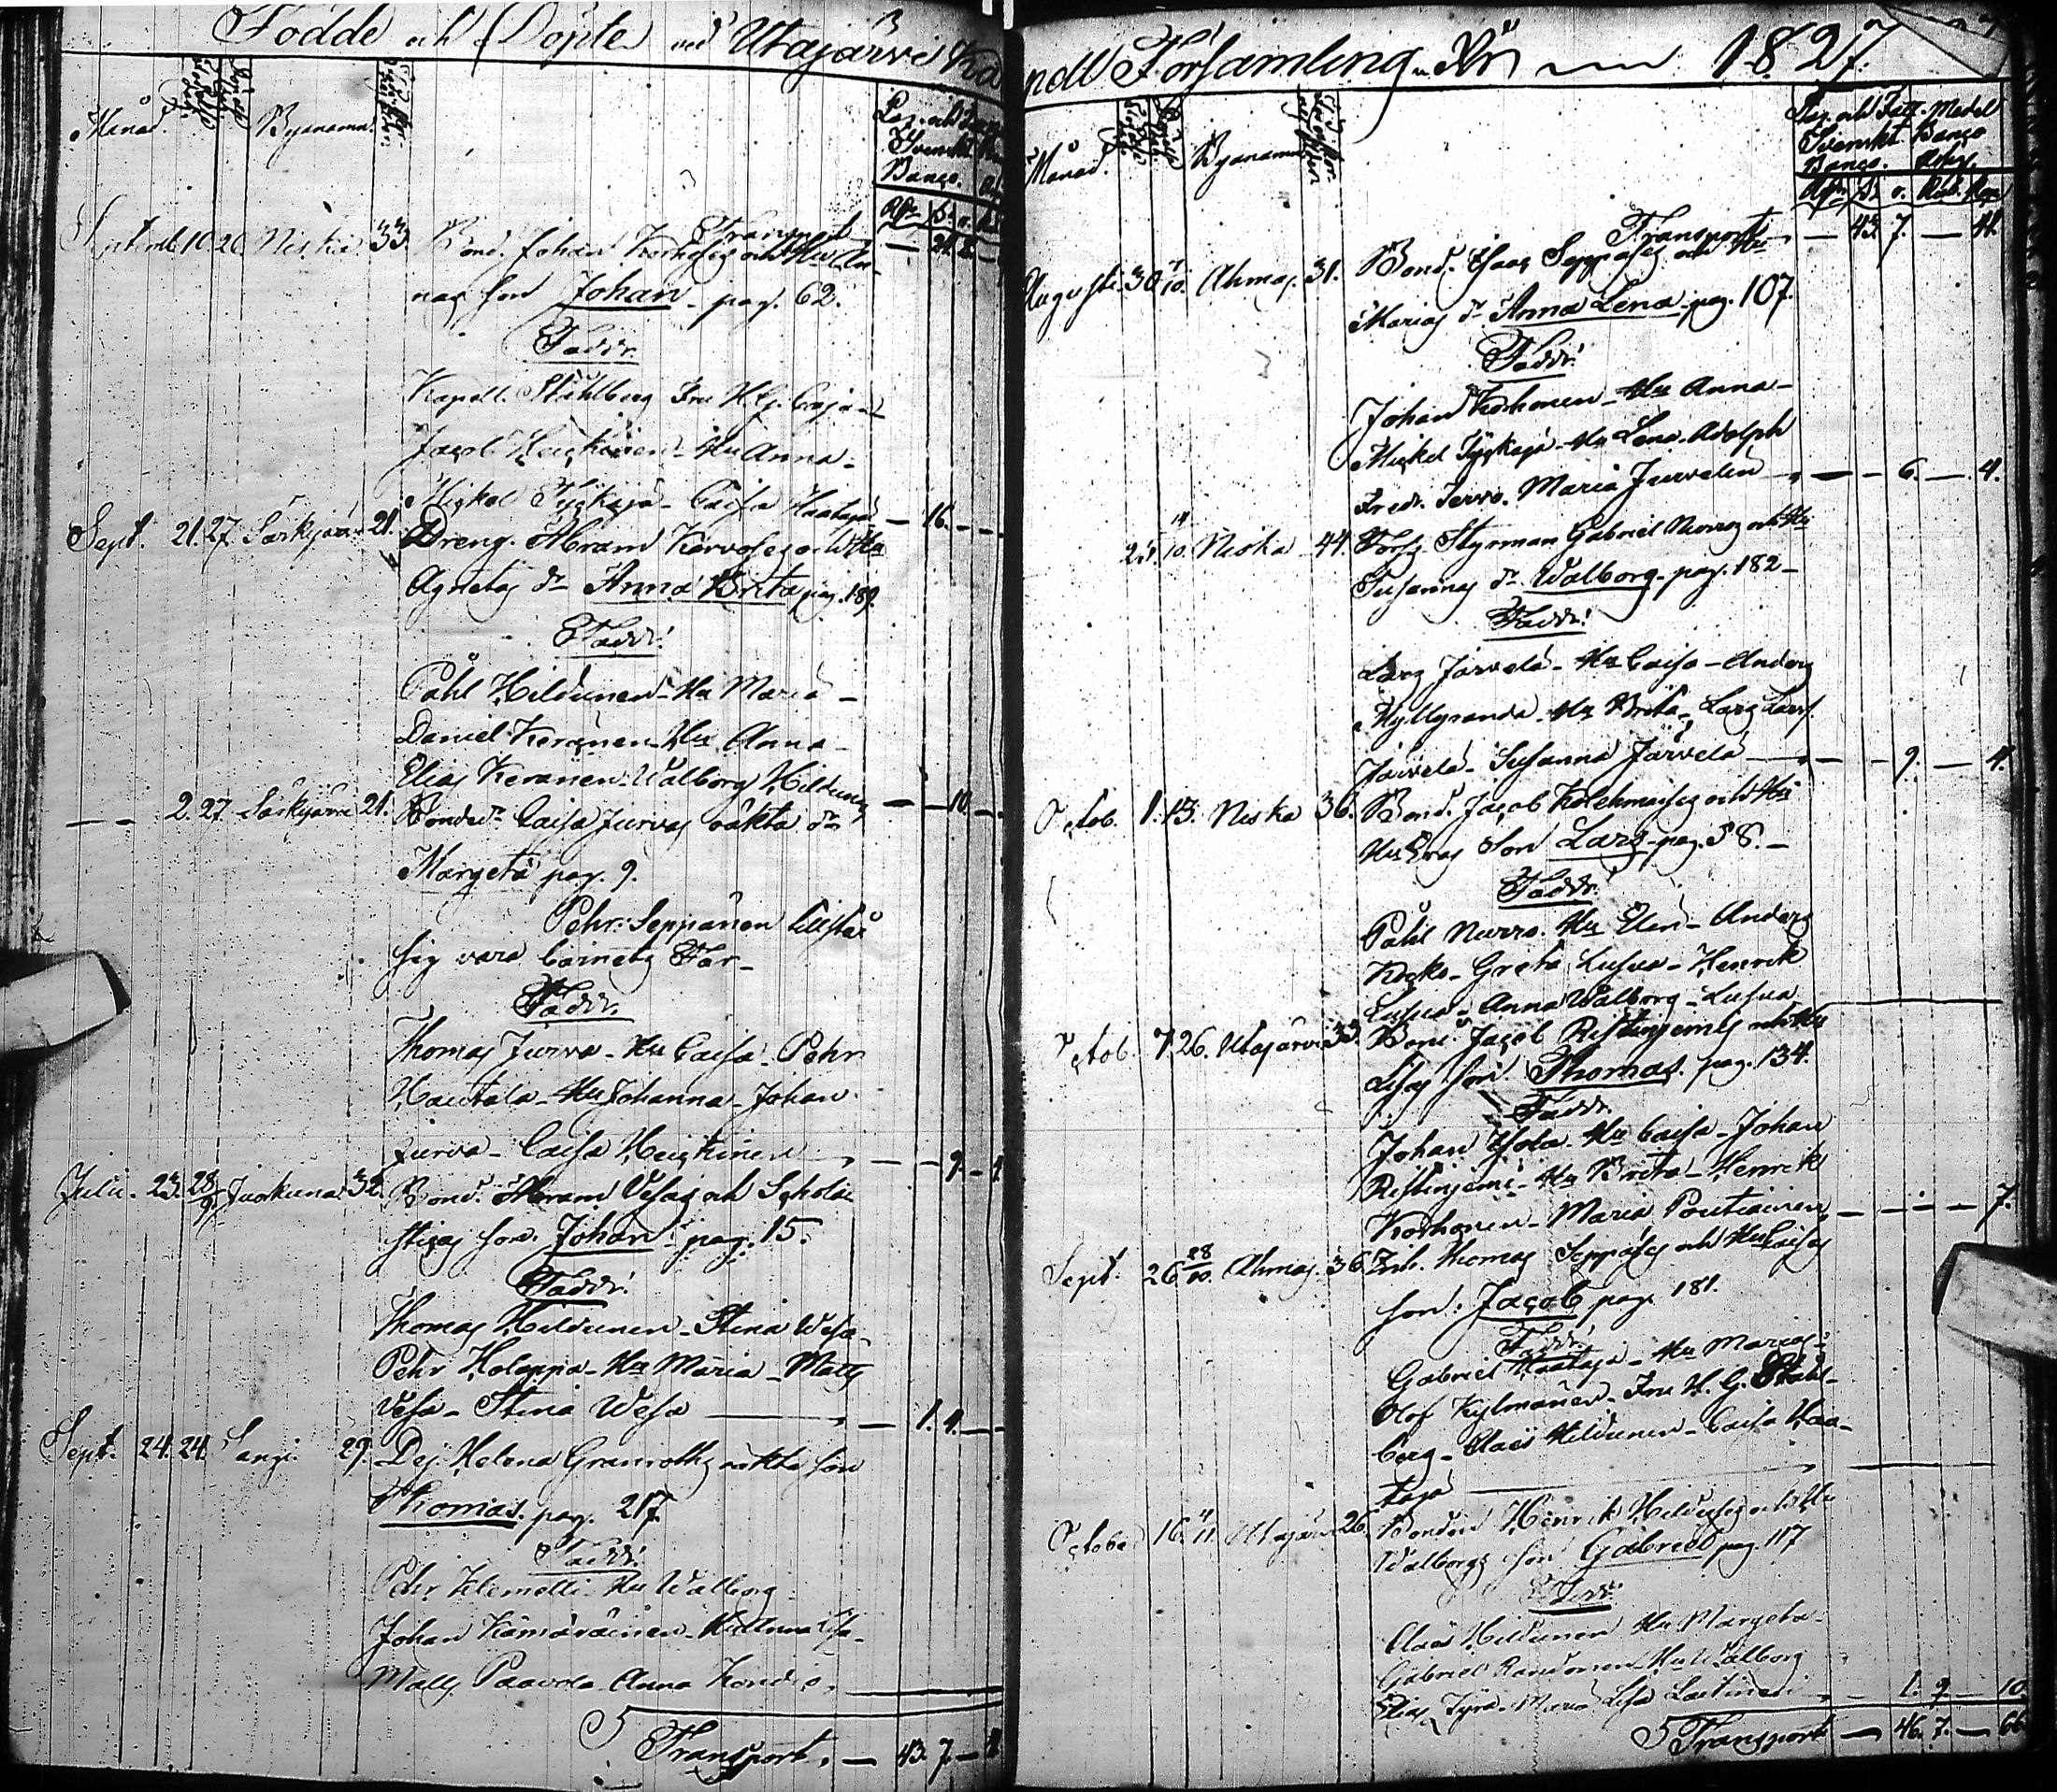 Födde och Döpte uti Utajärvi Ka
Månad. Byanamn.
Svenskt
Banco.
Transport
Septemb. 10. 20. Niska. 33. Bond. Johan Korhoses och Hu An-
nas son Johan - pag. 62.
Faddr.
Kapell. Ståhlberg Fru H. G. Cajan
Jacob Heickinen - Hu Anna -
Mickel Tyckäjä - Caisa Haataja - 16. -
Sept. 21. 27. Särkijärvi 21. Dreng. Abram Karvoses och Hu
Agnetas dr Anna Brita pag. 189.
Faddr.
Påhl Hildunen - Hu Maria -
Daniel Keränen - Hu Anna -
Elias Keränen - Walborg Hildunen - 10. -
2. 27. Särkijärvi 21. Bonded. Caisa Jurvas oäkta dr
Margeta pag. 9.
Pehr Seppänen tillstår
sig vara barnets Far -
Faddr.
Thomas Jurva - Hu Caisa - Pehr
Hautala - Hu Johanna - Johan
Jurva - Caisa Heickinen - 9. -
Julii. 23. 28/9. Juorkuna 32. Bond. Abram Vesas och Schola-
sticas son. Johan pag. 15.
Faddr.
Thomas Hildunen - Stina Wesa -
Pehr Holappa - Hu Maria - Matts
Vesa - Stina Wesa - 1. 4. -
Sept. 24. 24. Sangi. 29. Pig. Helena Granroths oäkta son
Thomas. pag. 217.
Faddr.
Pehr Klemetti - Hu Walborg
Johan Kämäräinen - Hu Anna Lisa -
Matts Paavola Anna
Transport. - 43. 7. -
pell Församling År 1827.
Månad. Byanamn
Svenskt Banco
Banco.
Transport - 43. 7. - 41.
Augusti 30 7/10. Ahmas. 31. Bond. Isaac Seppäses och Hu
Marias dr Anna Lena - pag. 107.
Faddr.
Johan Korhonen - Hu Anna -
Mickel Tyckäjä - Hu Lena - Adolph
Fredr. Maria Jurvelin - 6. - 4.
25. 14/10. Niska 44. Styrman Gabriel och Hu
Susannas dr Walborg - pag. 182 -
Faddr.
Lars Järvelä - Hu Caisa - Anders
Kyllyrända - Hu Brita - Lars Lars.
Järvelä - Susanna Järvelä - 9. - 4.
Octob. 1. 13. Niska 36. Bond. Jacob Kolehmaises och Hu
Hu Evas Son Lars - pag. 58. -
Faddr.
Påhl Nurro. Hu Elin - Anders
Kocko - Greta Lusua - Henrik
Lusua - Anna Walborg Lusua
Octob. 7. 26. Utajärvi 33. Bond. Jacob och Hu
Lisas son. Thomas. pag. 134.
Faddr.
Johan Yjola - Hu Caisa - Johan
Ristinjemi - Hu Brita - Henrik
Korhonen - Maria Pontiainen - 7.
Sept. 26 28/10. Ahmas. 36. Inh. Thomas Seppäses och Hu Caisas
son: Jacob pag. 181.
Faddr.
Gabriel Haataja - Hu Maria -
Olof Kylmänen. Fru H. G. Ståhl-
berg - Claës Hildunen - Caisa Haa-
taja
October 16. 4/11. Utajärvi 26. Bonden Henrik och Hu
Walborgs son Gabriel pag. 117
Faddr.
Claës Hildunen Hu Margeta -
Gabriel Randonen Hu Walborg
Elias Tyrä - Maria Lisa Laitinen - 1. 9. - 10.
Transport - 46. 7. - 66.